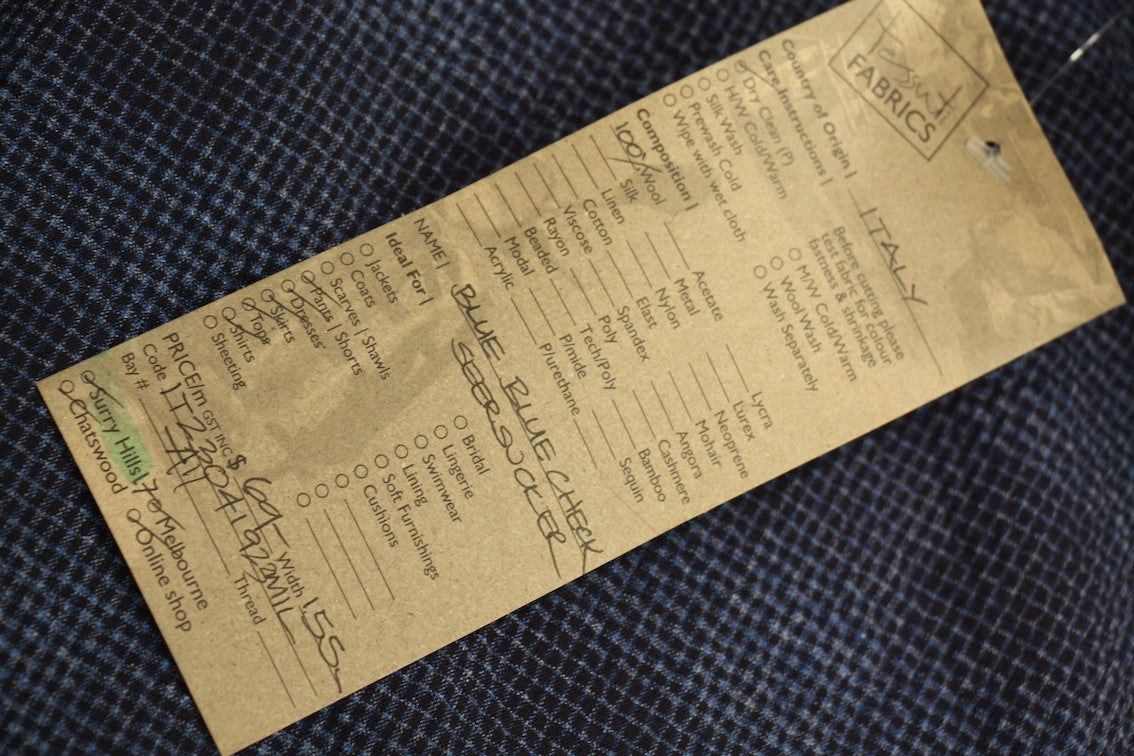 Tessuti
FABRICS
Country of Origin | ITALY
Care Instructions |
Before cutting please
test fabric for colour
fastness & shrinkage
Dry Clean (P)
H/W Cold/Warm
Silk Wash
Prewash Cold
Wipe with wet cloth
M/W Cold/Warm
Wool Wash
Wash Separately
Composition |
100% Wool
Silk
Linen
Cotton
Viscose
Rayon
Beaded
Modal
Acrylic
Acetate
Metal
Nylon
Elast
Spandex
Poly
Tech/Poly
P/mide
P/urethane
Lycra
Lurex
Neoprene
Mohair
Angora
Cashmere
Bamboo
Sequin
NAME | BLUE BLUE CHECK
SEERSUCKER
Ideal For |
Jackets
Coats
Scarves | Shawls
Pants | Shorts
Dresses
Skirts
Tops
Shirts
Sheeting
Bridal
Lingerie
Swimwear
Lining
Soft Furnishings
Cushions
PRICE/m GST INC $ 69- Width 155
Code IT23041923MIL
Bay # Thread
Surry Hills Melbourne
Chatswood Online shop